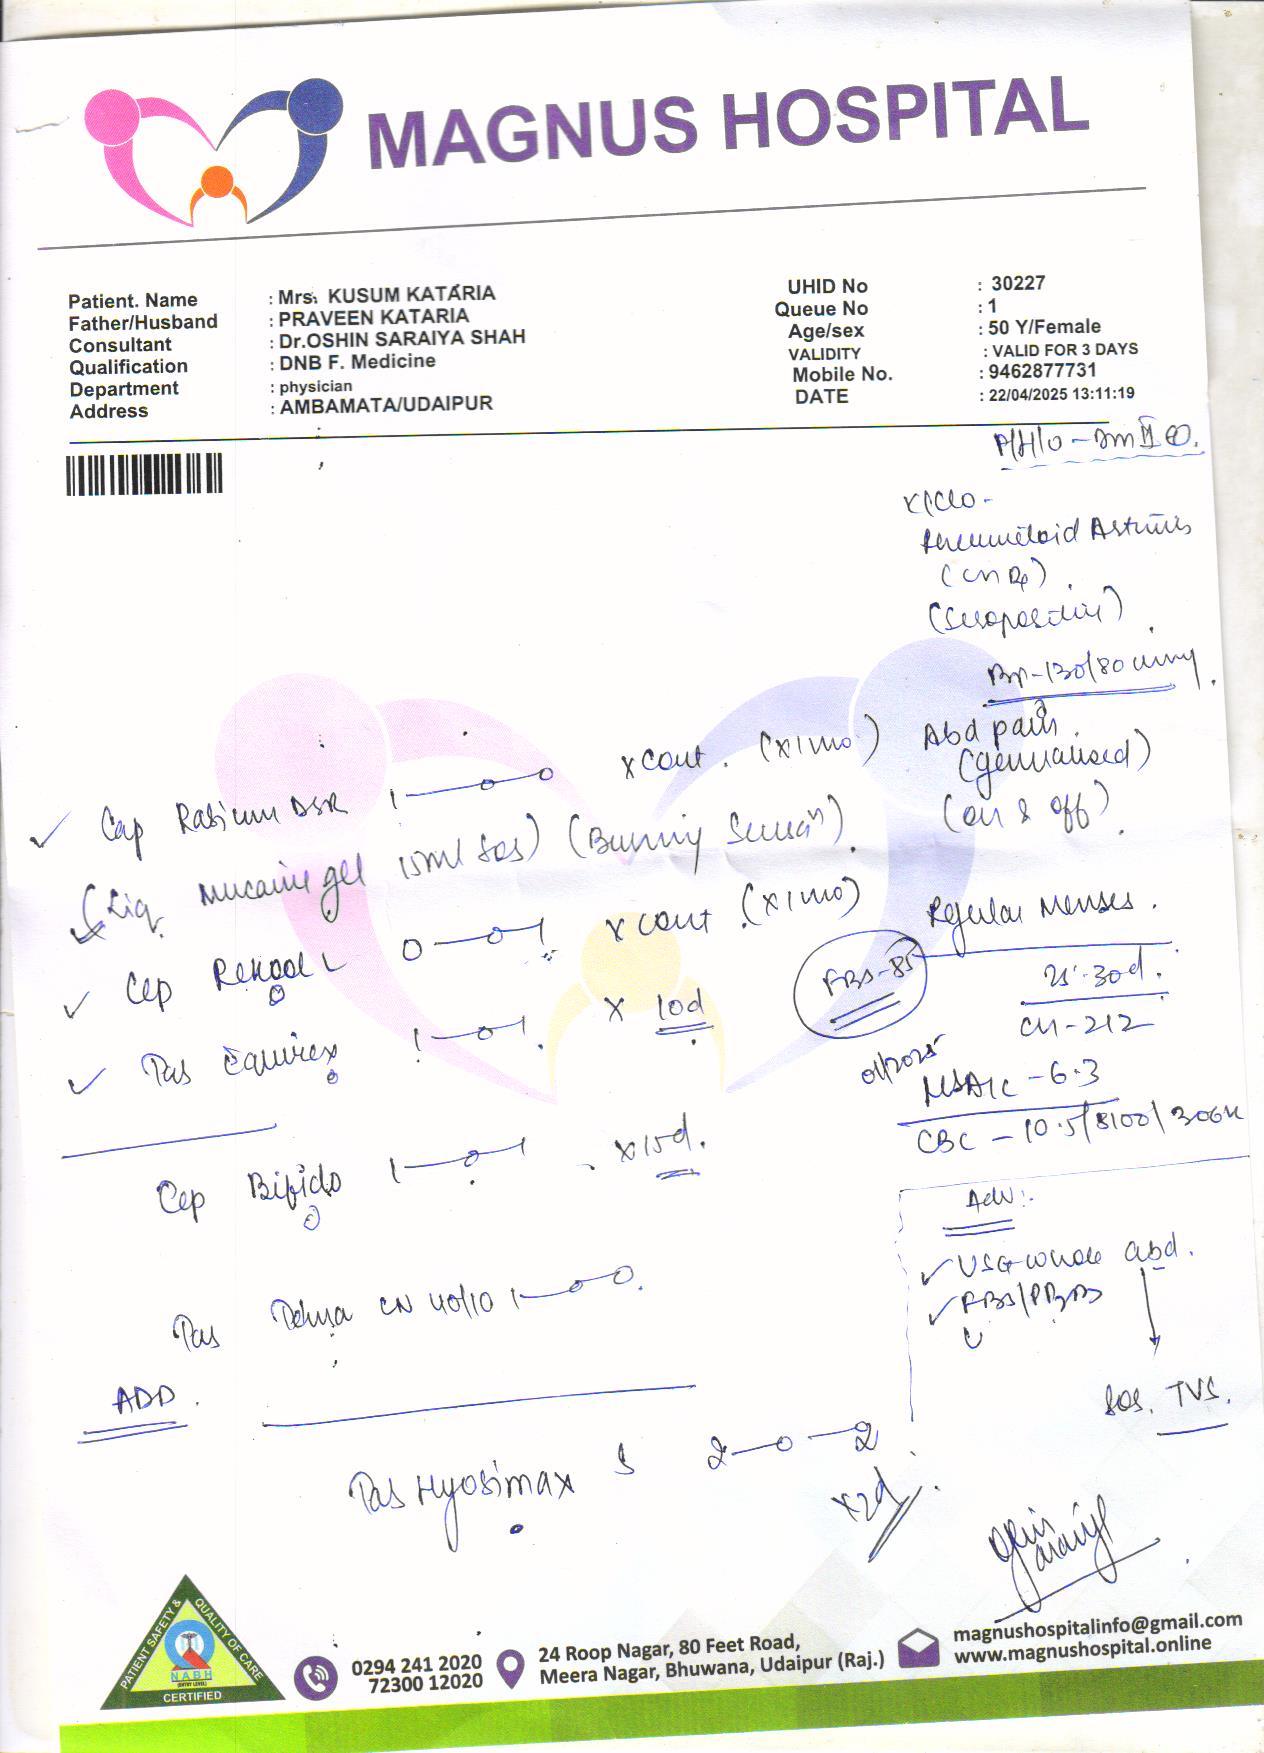 MAGNUS HOSPITAL
Patient. Name : Mrs. KUSUM KATARIA
Father/Husband : PRAVEEN KATARIA
Consultant : Dr.OSHIN SARAIYA SHAH
Qualification : DNB F. Medicine
Department : physician
Address : AMBAMATA/UDAIPUR
UHID No : 30227
Queue No : 1
Age/sex : 50 Y/Female
VALIDITY : VALID FOR 3 DAYS
Mobile No. : 9462877731
DATE : 22/04/2025 13:11:19
P/H/O - DM II
K/C/O -
Rheumatoid Arthritis
(Seropositive)
BP - 130/80 mmHg
Abd pain
(generalised)
(on & off)
Regular Menses.
30d.
FBS - 85
01/2025
- 212
HbA1c - 6.3
CBC - 10.5/8100/306K
Adv:
✓ USG whole abd.
✓ FBS/PPBS
SOS. TVS.
✓ Cap Rabium DSR 1—0—0 x cont. (x1mo)
(Liq. Mucaine gel 15ml SOS) (Burning Sensn).
✓ Cap Rekool L 0—0—1 x cont (x1mo)
✓ Tab Equirex 1—0—1. x 10d
Cap Bifido 1—0—1 x 15d.
Tab CN 40/10 1—0—0.
ADD.
Tab Hyosimax S 2—0—2
x 2d
PATIENT SAFETY & QUALITY OF CARE
NABH
(ENTRY LEVEL)
CERTIFIED
0294 241 2020
72300 12020
24 Roop Nagar, 80 Feet Road,
Meera Nagar, Bhuwana, Udaipur (Raj.)
magnushospitalinfo@gmail.com
www.magnushospital.online